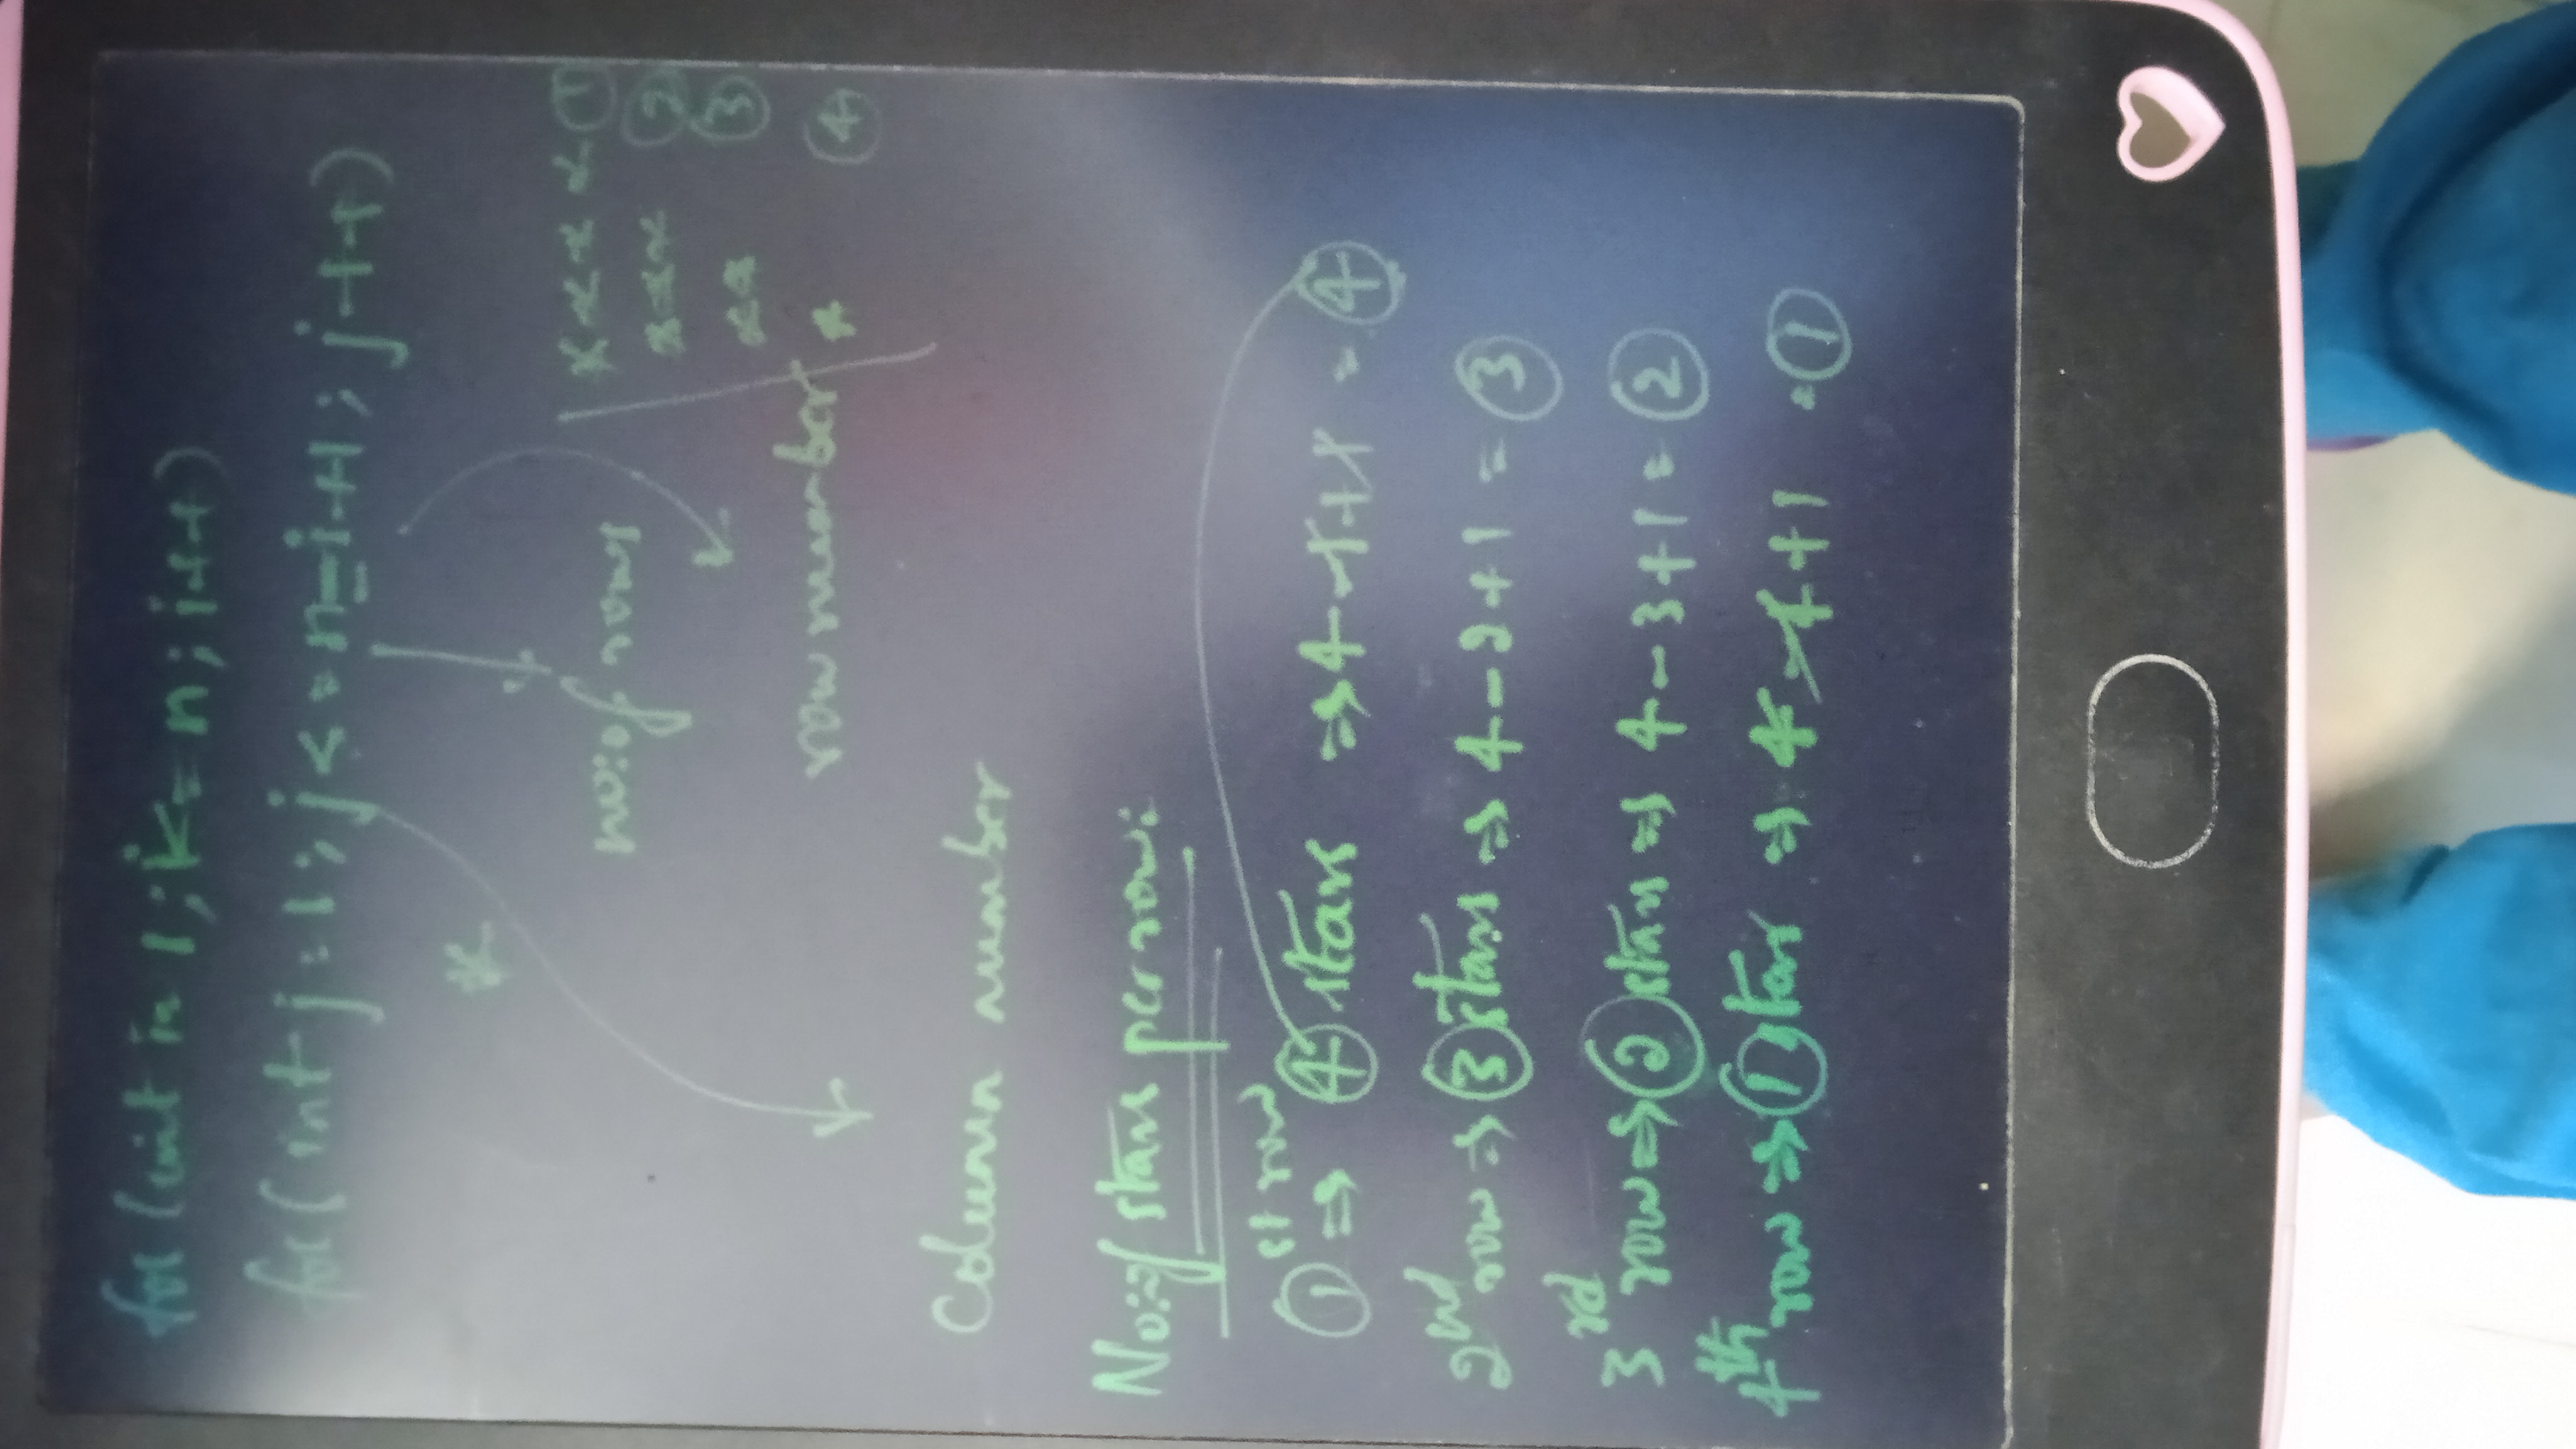 for (int i = 1; i <= n; i++)
for (int j = 1; j <= n-i+1; j++)
* * * * ①
* * * ②
* * ③
* ④
*
no: of rows
row number
Column number
No: of stars per row:
① st row ⇒ ④ stars ⇒ 4-1+1 = ④
2nd row ⇒ ③ stars ⇒ 4-2+1 = ③
3rd row ⇒ ② stars ⇒ 4-3+1 = ②
4th row ⇒ ① star ⇒ 4-4+1 = ①